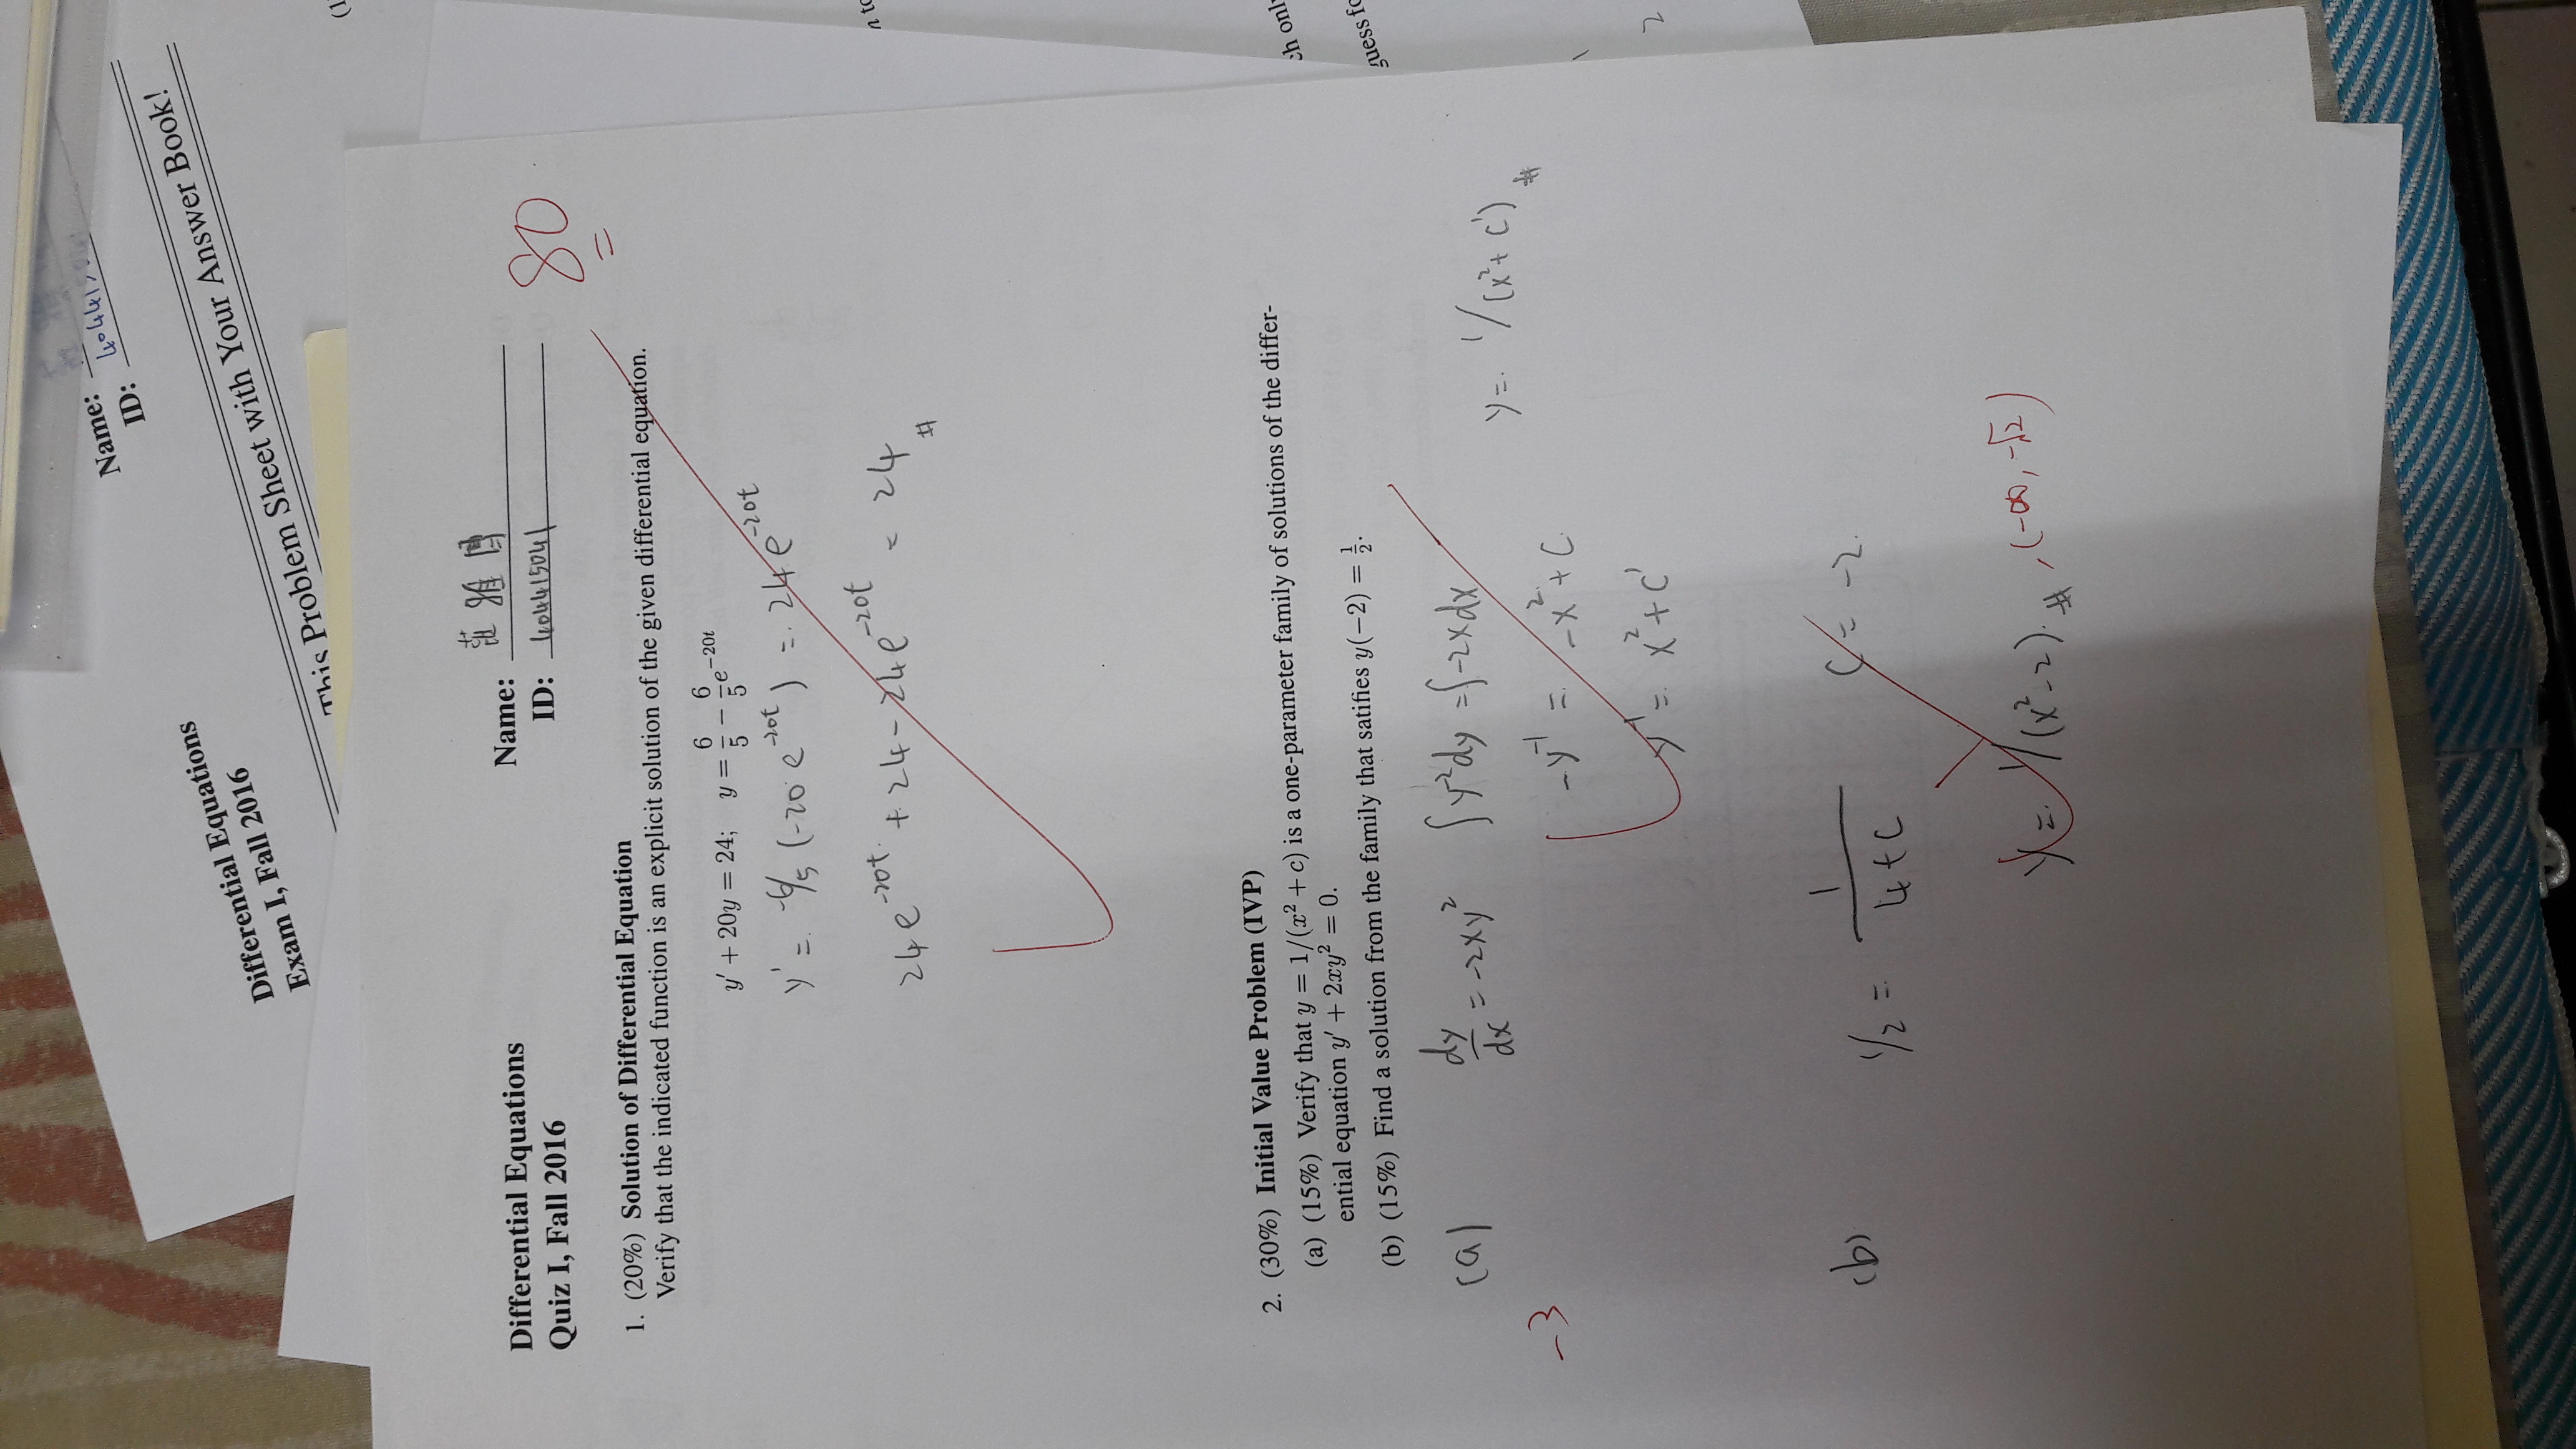 Name:
ID: 404415041
Differential Equations
Exam I, Fall 2016
This Problem Sheet with Your Answer Book!
(1
Differential Equations
Quiz I, Fall 2016
Name: 范雅
ID: 404415041
80
1. (20%) Solution of Differential Equation
Verify that the indicated function is an explicit solution of the given differential equation.
y' + 20y = 24; y = 6/5 − 6/5 e^{−20t}
y' = -6/5 (-20 e^{-20t}) = 24e^{-20t}
24e^{-20t} + 24 - 24e^{-20t} = 24 #
2. (30%) Initial Value Problem (IVP)
(a) (15%) Verify that y = 1/(x² + c) is a one-parameter family of solutions of the differ-
ential equation y' + 2xy² = 0.
(b) (15%) Find a solution from the family that satifies y(−2) = 1/2.
(a) dy/dx = -2xy² ∫y^{-2}dy = ∫-2xdx
y = 1/(x²+c') #
-3
-y^{-1} = -x² + C
y^{-1} = x² + c'
(b) 1/2 = 1/(4+c) C = -2
y = 1/(x²-2) # , (-∞, -√2)
n to
ch only
guess fo
2